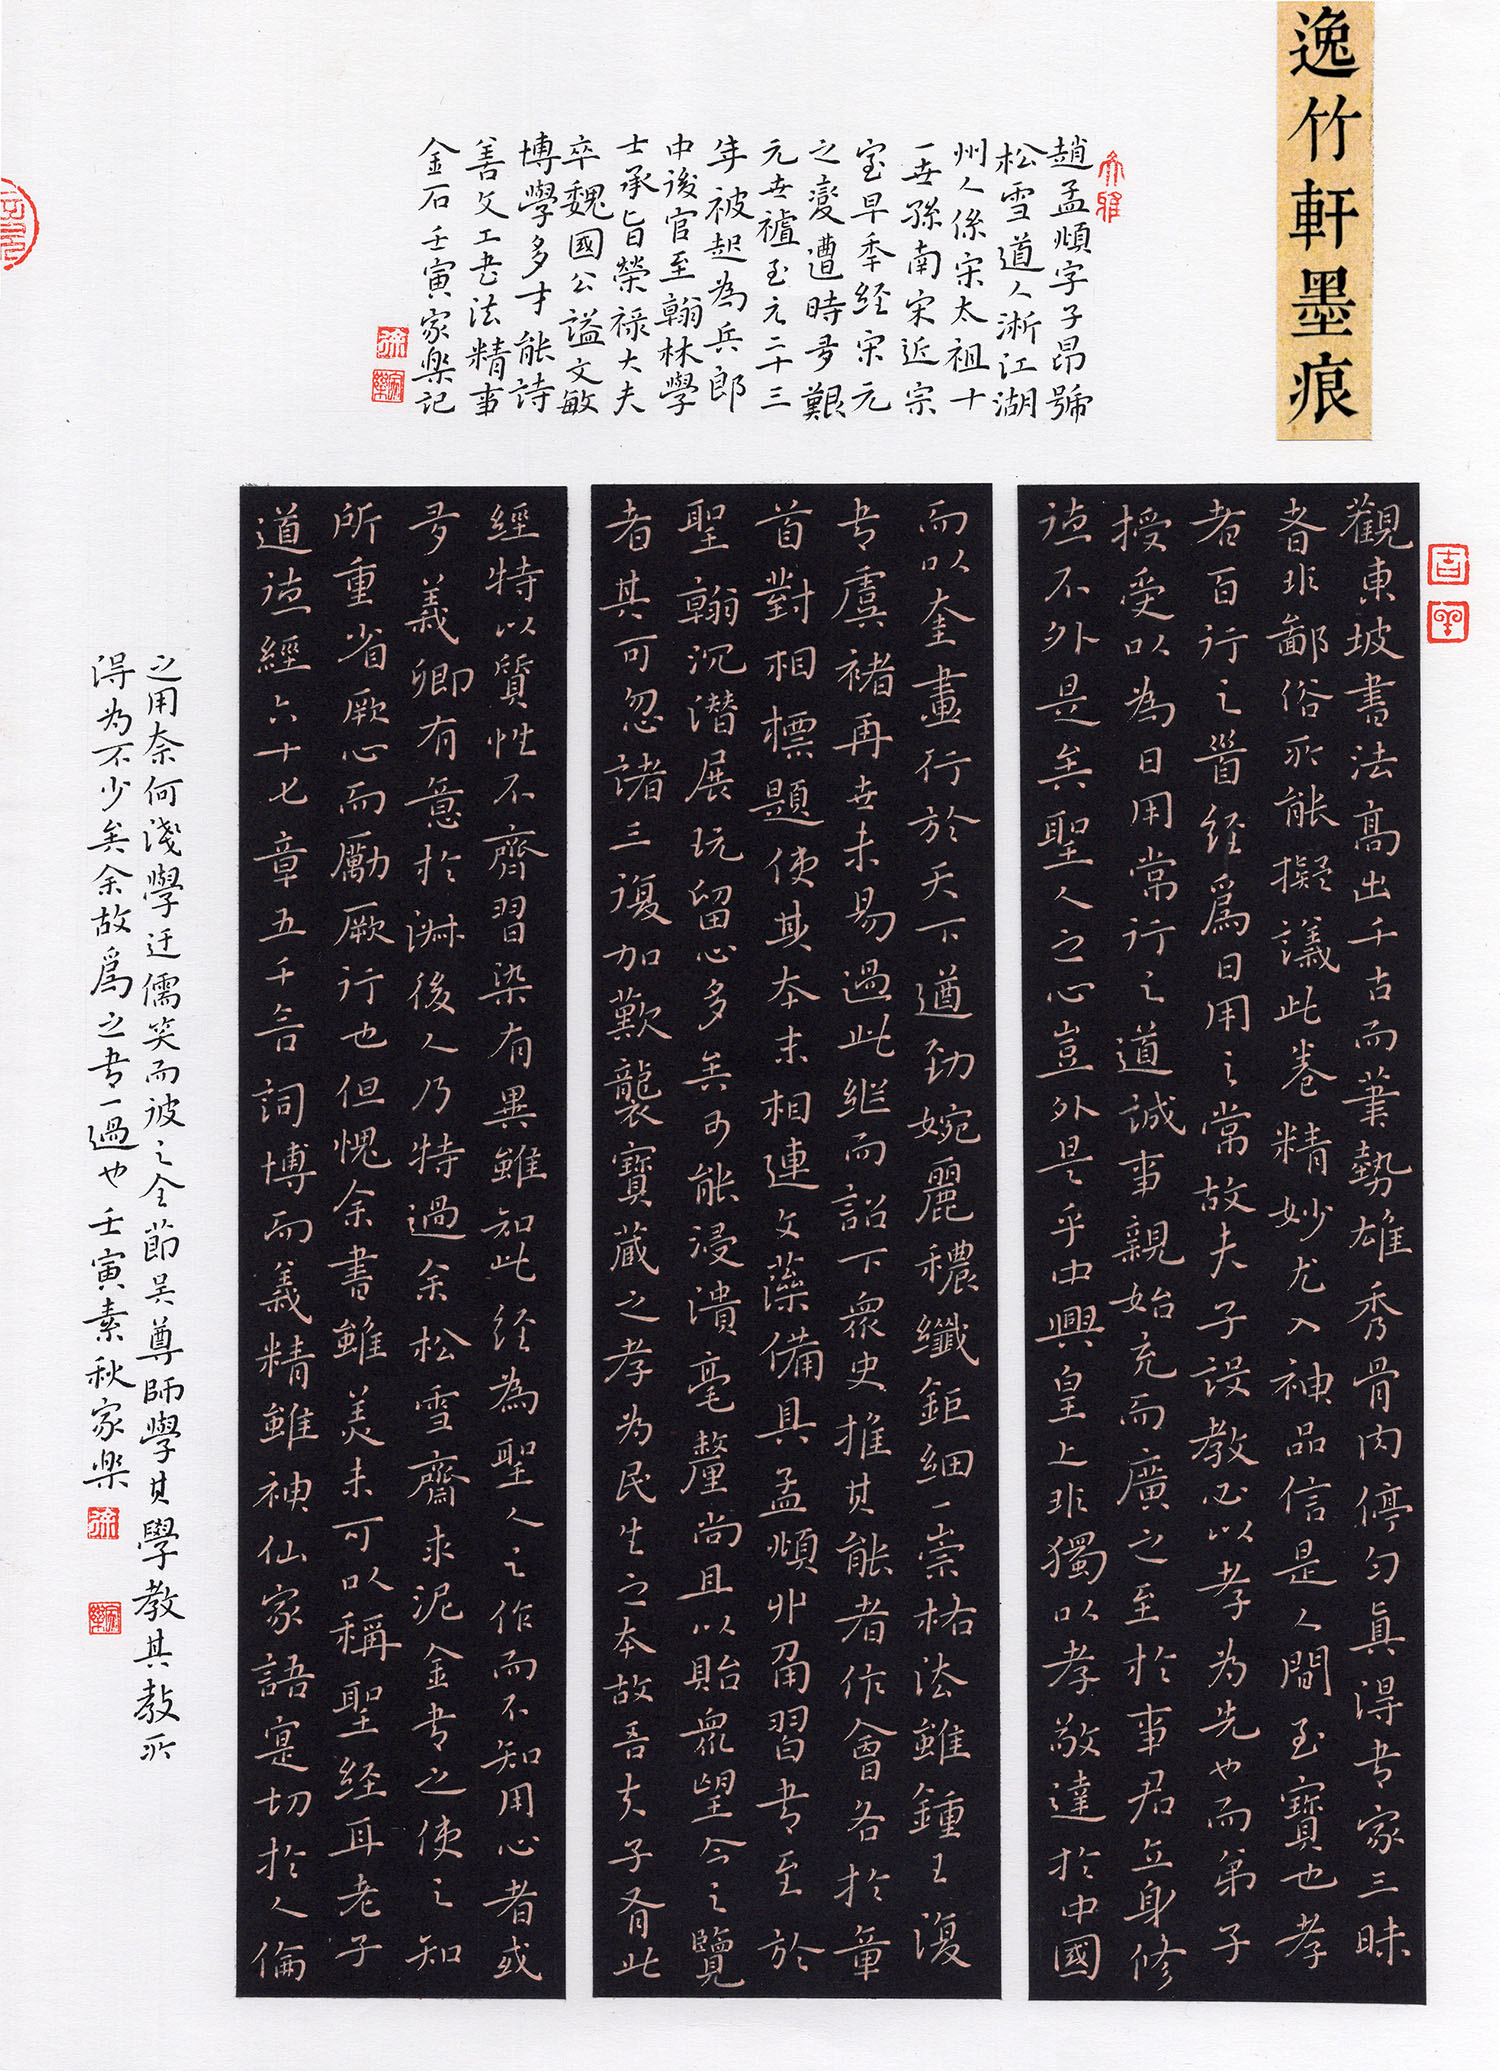 逸竹軒墨痕
趙孟頫字子昂號
松雪道人浙江湖
州人係宋太祖十
一世孫南宋近宗
室早年經宋元
之變遭時多艱
元世祖至元二十三
年被起為兵郎
中後官至翰林學
士承旨榮祿大夫
卒魏國公謚文敏
博學多才能詩
善文工書法精事
金石壬寅家樂記
觀東坡書法高出千古而筆勢雄秀骨肉停勻真得書家三昧
者非鄙俗所能擬議此卷精妙尤入神品信是人間至寶也孝
者百行之首經為日用之常故夫子設教必以孝為先也而弟子
授受以為日用常行之道誠事親始充而廣之至於事君立身修
德不外是矣聖人之心豈外是乎中興皇上非獨以孝敬達於中國
而以奎畫行於天下遒勁婉麗穠纖鉅細一崇格法雖鍾王復
書虞褚再世未易過此繼而詔下眾史推其能者作會各於章
首對相標題使其本末相連文藻備具孟頫非甭習書至於
聖翰沉潛展玩留心多矣可能浸漬毫釐尚且以貽眾望今之覽
者其可忽諸三復加歎襲寶藏之孝為民生之本故吾夫子有此
經特以質性不齊習染有異雖知此經為聖人之作而不知用心者或
多義卿有意於淋後人乃特過余松雪齋求泥金書之使之知
所重省厥心而勵厥行也但愧余書雖美未可以稱聖經耳老子
道德經六十七章五千言詞博而義精雖神仙家語寔切於人倫
之用奈何淺學迂儒笑而彼之全節吴尊師學其學教其教所
得為不少矣余故為之書一過也壬寅素秋家樂